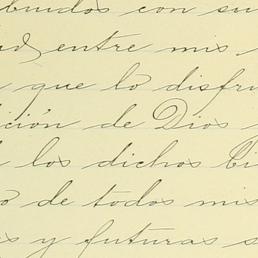 buidos con su
entre mis
que lo disfru
ición de Dios
los dichos
o de todos mis
s y futuras s